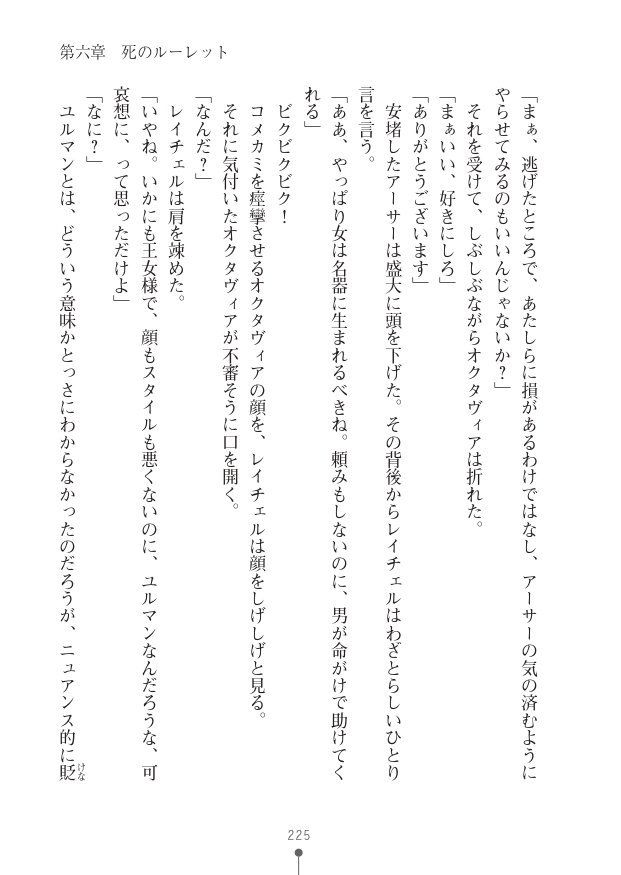 第六章　死のルーレット
「まぁ、逃げたところで、あたしらに損があるわけではなし、アーサーの気の済むように
やらせてみるのもいいんじゃないか？」
それを受けて、しぶしぶながらオクタヴィアは折れた。
「まぁいい、好きにしろ」
「ありがとうございます」
安堵したアーサーは盛大に頭を下げた。その背後からレイチェルはわざとらしいひとり
言を言う。
「ああ、やっぱり女は名器に生まれるべきね。頼みもしないのに、男が命がけで助けてく
れる」
ビクビクビク！
コメカミを痙攣させるオクタヴィアの顔を、レイチェルは顔をしげしげと見る。
それに気付いたオクタヴィアが不審そうに口を開く。
「なんだ？」
レイチェルは肩を竦めた。
「いやね。いかにも王女様で、顔もスタイルも悪くないのに、ユルマンなんだろうな、可
哀想に、って思っただけよ」
「なに？」
ユルマンとは、どういう意味かとっさにわからなかったのだろうが、ニュアンス的に貶
けな
225